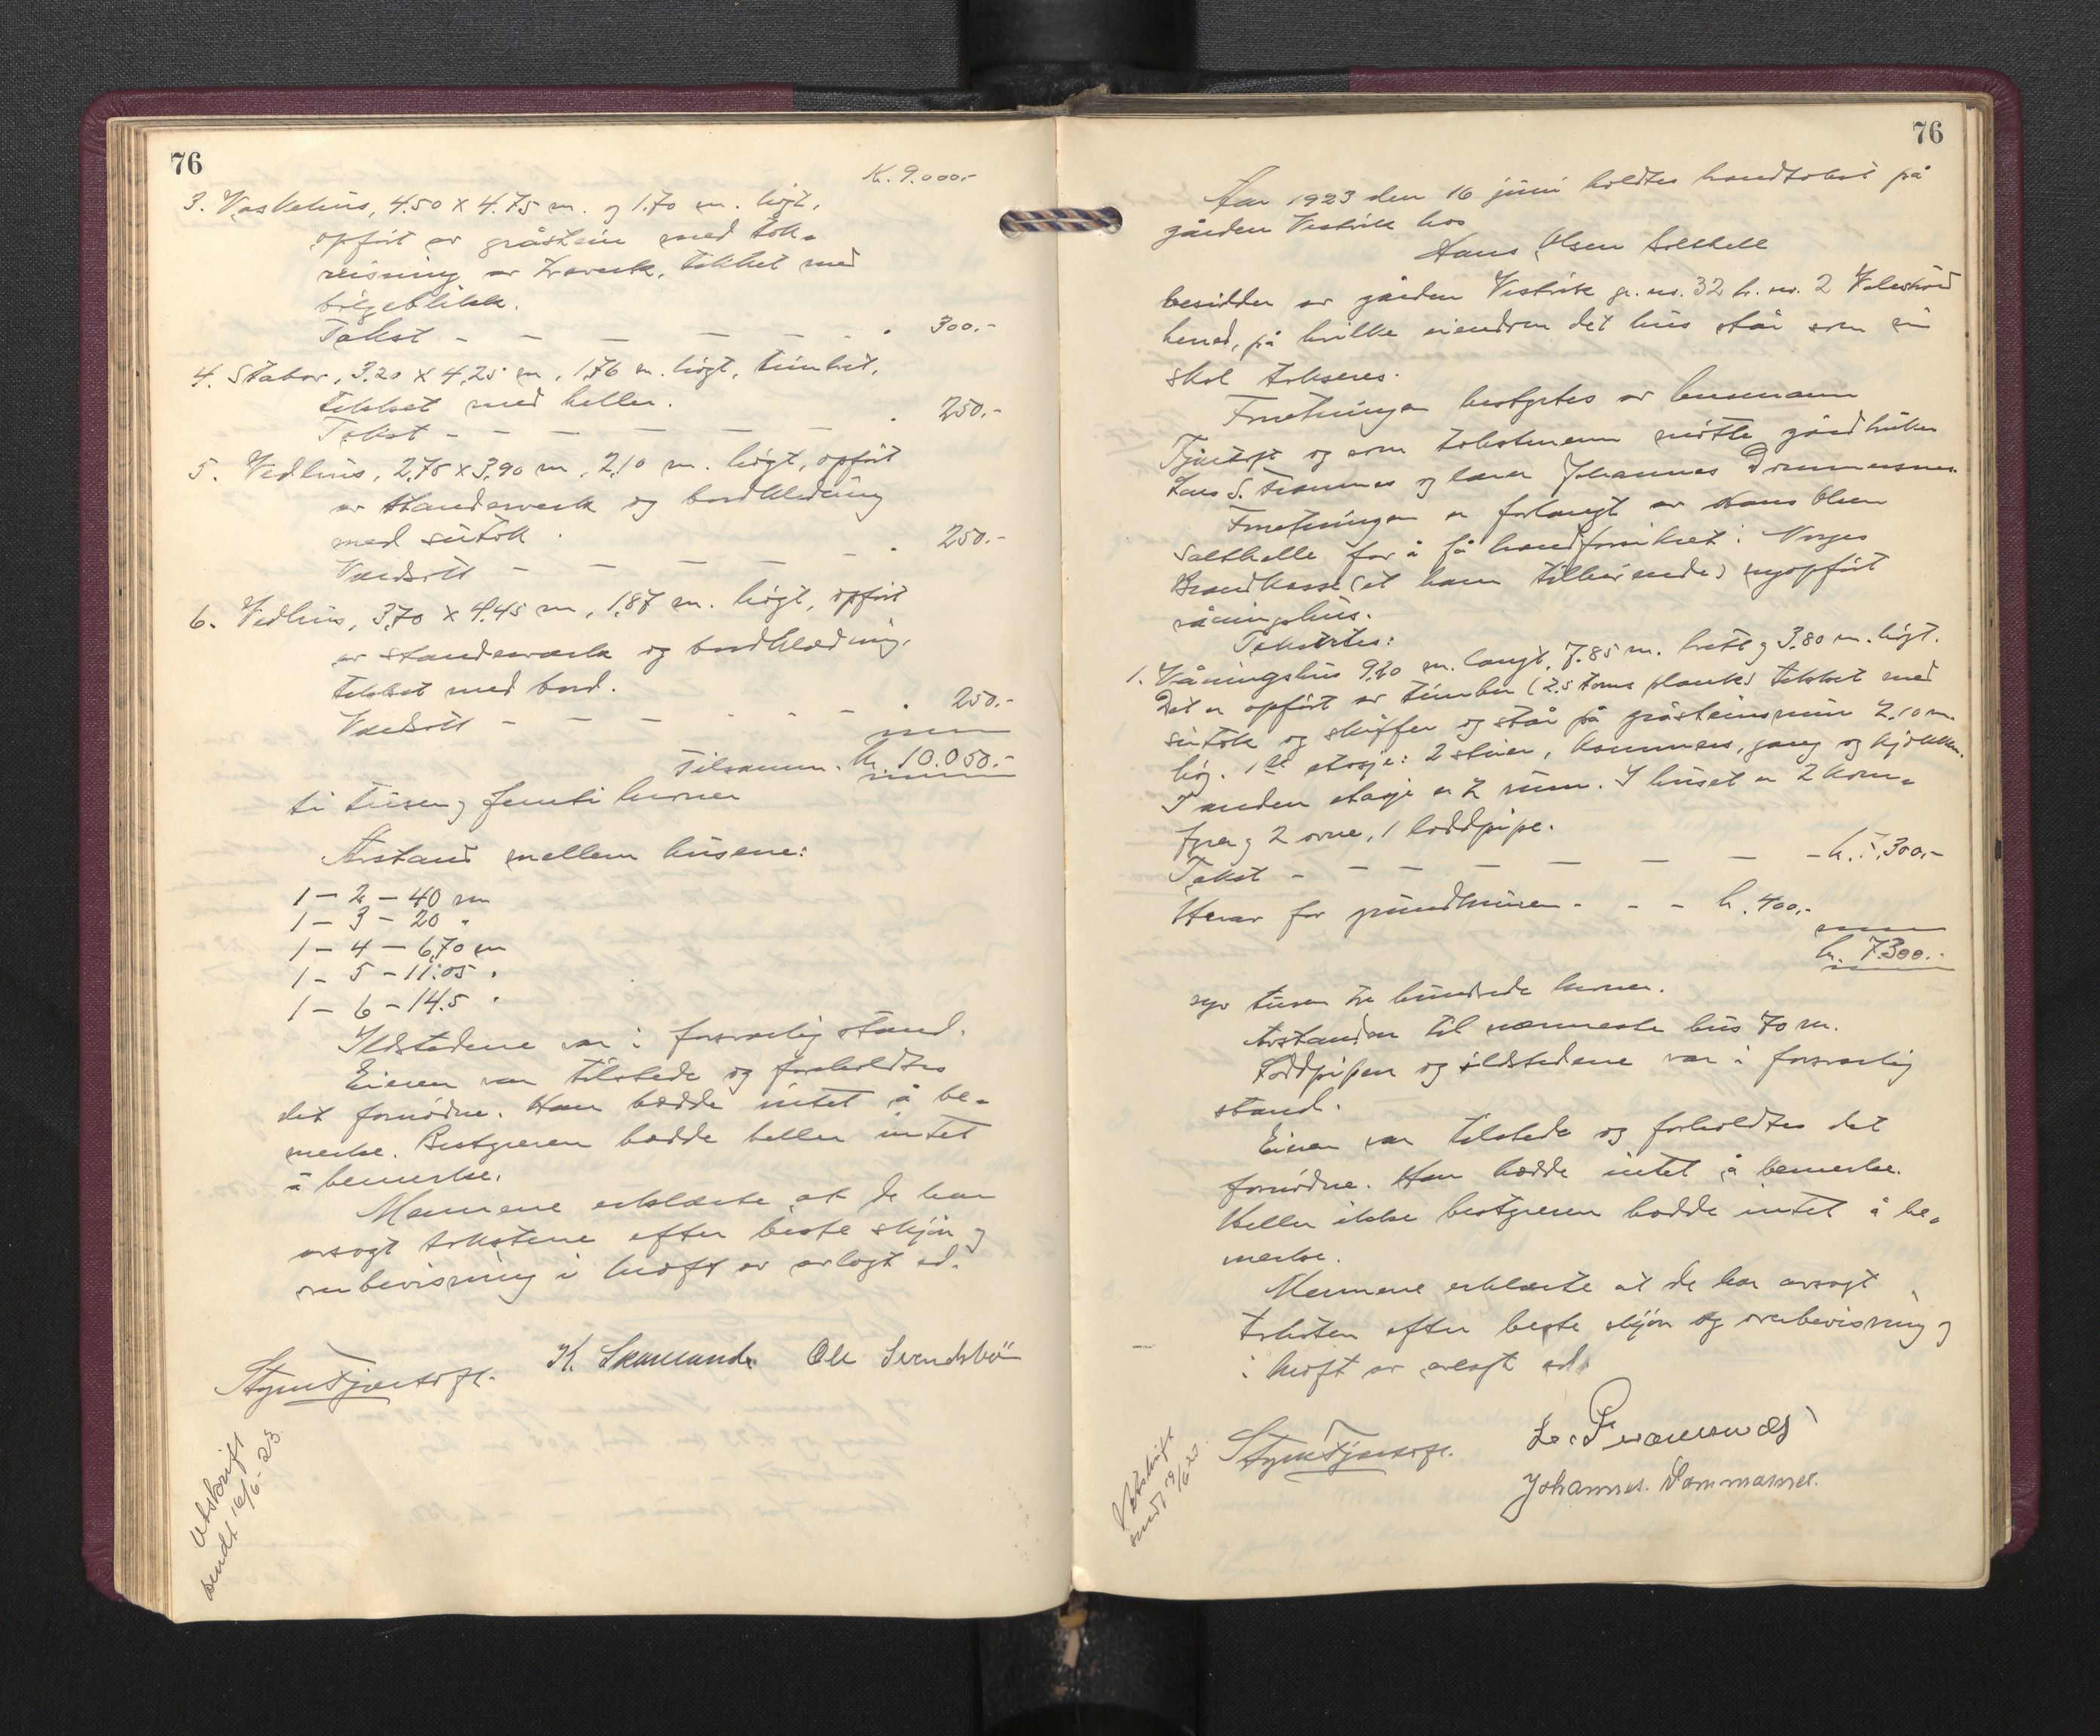 76
Kr. 9.000.-
3. Vaskehus, 4.50 x 4.75 m. og 1.70 m. høgt,
opført av gråstein med tak-
reisning av træverk, tekket med
bølgeblikk.
Takst - - - - - - - " 300.-
4. Stabur, 3.20 x 4.25 m, 1.76 m. høgt, timbret,
tekket med heller.
Takst - - - - - - - " 250.-
5. Vedhus, 2.75 x 3.90 m, 2.10 m. høgt, opført
av standerverk og bordklædning
med sutak.
Værdsatt - - - - - - " 250.-
6. Vedhus, 3.70 x 4.45 m, 1.87 m. høgt, opført
av standerværk og bordklædning,
tekket med bord.
Værdsatt - - - - - - " 250.-
Tilsamm. kr. 10.050.-
ti tusen og femti kroner
Avstand mellem husene:
1 - 2 - 40 m
1 - 3 - 20 "
1 - 4 - 6.70 m
1 - 5 - 11.05 "
1 - 6 - 14.5 "
Ildstedene var i forsvarlig stand.
Eieren var tilstede og foreholdtes
det fornødne. Han hadde intet å be-
merke. Bestyreren hadde heller intet
å bemerke.
Mennene erklærte at de har
avsagt takstene efter beste skjøn og
overbevisning i kraft av avlagt ed.
K. Skarsund Ole Svendsbø
Utskrift
sendt 16/6-23.
76
Aar 1923 den 16 juni holdtes brandtakst på
gården Vestvik hos
Hans Olsen Solthell
besidder av gården Vestvik gr. nr. 32 br. nr. 2
herred, på hvilke eiendom det hus står som nu
skal takseres.
Forretningen bestyrtes av lensmann
Fjærtoft og som takstmenn møtte gårdbruker
Lars S. og lærer Johannes
Forretningen er forlangt av Hans Olsen
Solthelle for å få brandforsikret i Norges
Brandkasse (et ham tilhørende) nyopført
våningshus.
Takstertes:
1. Våningshus 9.20 m. langt, 7.85 m. bredt og 3.80 m. høgt.
Det er opført av timber (2.5 toms planke) tekket med
sutak og skiffer og står på gråsteinsmur 2.10 m.
høg. 1ste etasje: 2 stuer, kammers, gang og kjøkken.
I anden etasje er 2 rum. I huset er 2 kom-
fyrer og 2 ovne, 1 loddpipe.
Takst - - - - - - - kr. 7.300.-
Herav for grundmuren - - - kr. 400.-
kr. 7.300.-
syv tusen tre hundrede kroner.
Avstanden til nærmeste hus 70 m.
Loddpipen og ildstedene var i forsvarlig
stand.
Eieren var tilstede og forholdtes det
fornødne. Han hadde intet å bemerke.
Heller ikke bestyreren hadde intet å be-
merke.
Mennene erklærte at de har avsagt
taksten efter beste skjøn og overbevisning og
i kraft av avlagt ed.
Johannes.
Utskrift
sendt 19/6 23.